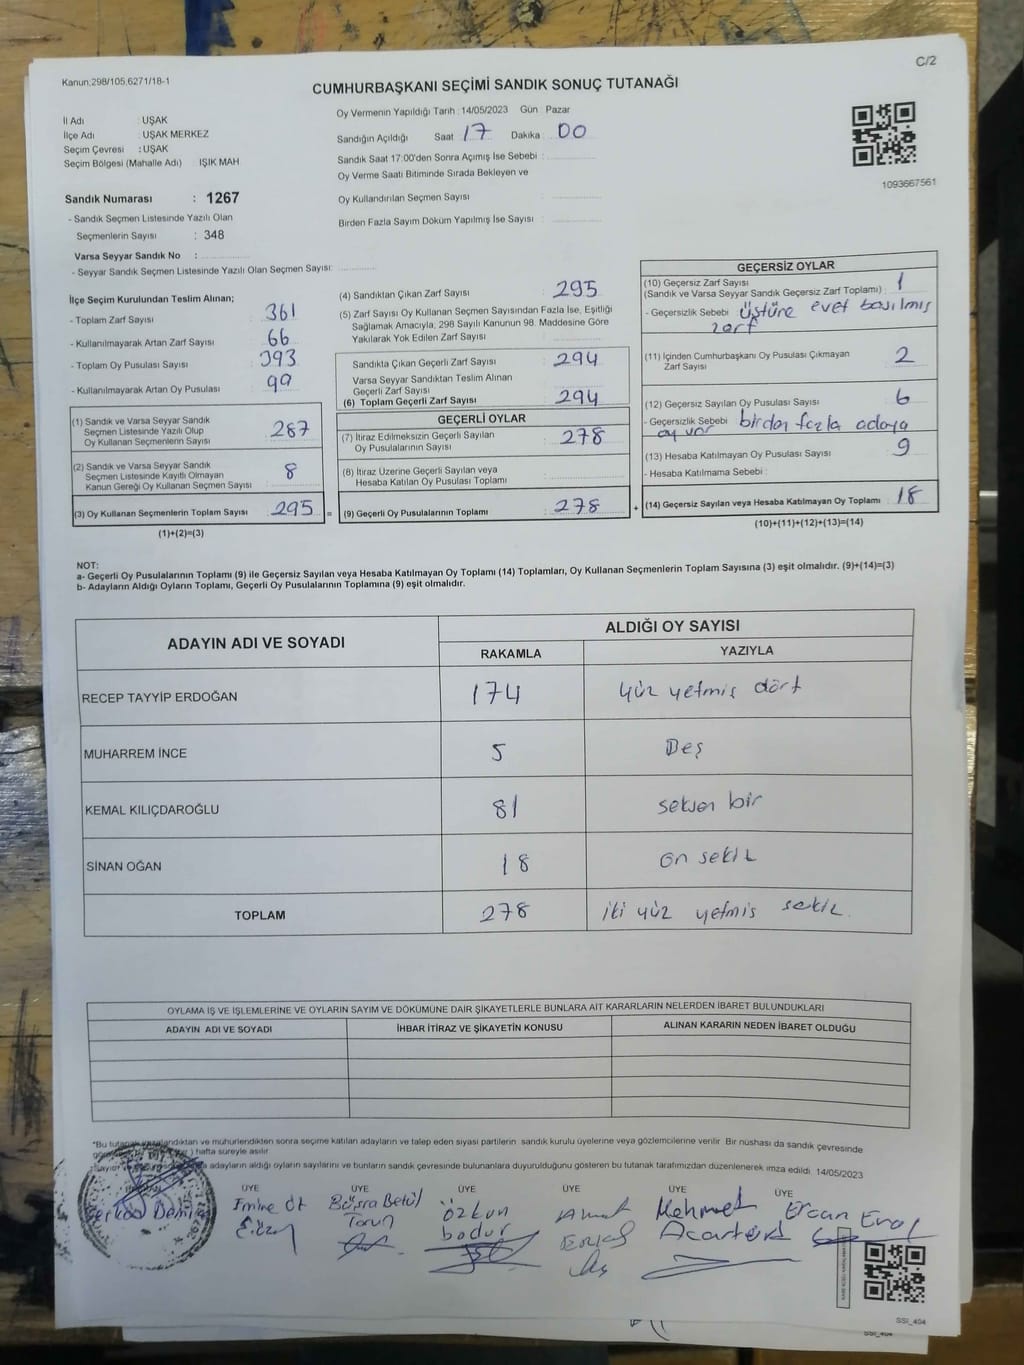 C/2
Kanun,298/105,6271/18-1
CUMHURBAŞKANI SEÇİMİ SANDIK SONUÇ TUTANAĞI
İl Adı : UŞAK
İlçe Adı : UŞAK MERKEZ
Seçim Çevresi : UŞAK
Seçim Bölgesi (Mahalle Adı) IŞIK MAH
Oy Vermenin Yapıldığı Tarih : 14/05/2023 Gün : Pazar
Sandığın Açıldığı Saat 17 Dakika : 00
Sandık Saat 17:00'den Sonra Açımış İse Sebebi :
Oy Verme Saati Bitiminde Sırada Bekleyen ve
Oy Kullandırılan Seçmen Sayısı :
Birden Fazla Sayım Döküm Yapılmış İse Sayısı :
1093667561
Sandık Numarası : 1267
- Sandık Seçmen Listesinde Yazılı Olan
Seçmenlerin Sayısı : 348
Varsa Seyyar Sandık No :
- Seyyar Sandık Seçmen Listesinde Yazılı Olan Seçmen Sayısı:
İlçe Seçim Kurulundan Teslim Alınan;
- Toplam Zarf Sayısı : 361
- Kullanılmayarak Artan Zarf Sayısı : 66
- Toplam Oy Pusulası Sayısı : 393
- Kullanılmayarak Artan Oy Pusulası : 99
(1) Sandık ve Varsa Seyyar Sandık
Seçmen Listesinde Yazılı Olup
Oy Kullanan Seçmenlerin Sayısı : 287
(2) Sandık ve Varsa Seyyar Sandık
Seçmen Listesinde Kayıtlı Olmayan
Kanun Gereği Oy Kullanan Seçmen Sayısı : 8
(3) Oy Kullanan Seçmenlerin Toplam Sayısı : 295 =
(1)+(2)=(3)
(4) Sandıktan Çıkan Zarf Sayısı : 295
(5) Zarf Sayısı Oy Kullanan Seçmen Sayısından Fazla İse, Eşitliği
Sağlamak Amacıyla, 298 Sayılı Kanunun 98. Maddesine Göre
Yakılarak Yok Edilen Zarf Sayısı :
Sandıkta Çıkan Geçerli Zarf Sayısı : 294
Varsa Seyyar Sandıktan Teslim Alınan
Geçerli Zarf Sayısı :
(6) Toplam Geçerli Zarf Sayısı : 294
GEÇERLİ OYLAR
(7) İtiraz Edilmeksizin Geçerli Sayılan
Oy Pusulalarının Sayısı : 278
(8) İtiraz Üzerine Geçerli Sayılan veya
Hesaba Katılan Oy Pusulası Toplamı :
(9) Geçerli Oy Pusulalarının Toplamı : 278 +
GEÇERSİZ OYLAR
(10) Geçersiz Zarf Sayısı
(Sandık ve Varsa Seyyar Sandık Geçersiz Zarf Toplamı) : 1
- Geçersizlik Sebebi : üstüne evet basılmış
zarf
(11) İçinden Cumhurbaşkanı Oy Pusulası Çıkmayan
Zarf Sayısı : 2
(12) Geçersiz Sayılan Oy Pusulası Sayısı : 6
- Geçersizlik Sebebi : birden fazla adaya
oy var
(13) Hesaba Katılmayan Oy Pusulası Sayısı : 9
- Hesaba Katılmama Sebebi :
(14) Geçersiz Sayılan veya Hesaba Katılmayan Oy Toplamı : 18
(10)+(11)+(12)+(13)=(14)
NOT:
a- Geçerli Oy Pusulalarının Toplamı (9) ile Geçersiz Sayılan veya Hesaba Katılmayan Oy Toplamı (14) Toplamları, Oy Kullanan Seçmenlerin Toplam Sayısına (3) eşit olmalıdır. (9)+(14)=(3)
b- Adayların Aldığı Oyların Toplamı, Geçerli Oy Pusulalarının Toplamına (9) eşit olmalıdır.
ADAYIN ADI VE SOYADI
ALDIĞI OY SAYISI
RAKAMLA YAZIYLA
RECEP TAYYİP ERDOĞAN 174 yüz yetmiş dört
MUHARREM İNCE 5 Beş
KEMAL KILIÇDAROĞLU 81 seksen bir
SİNAN OĞAN 18 on sekiz
TOPLAM 278 iki yüz yetmiş sekiz.
OYLAMA İŞ VE İŞLEMLERİNE VE OYLARIN SAYIM VE DÖKÜMÜNE DAİR ŞİKAYETLERLE BUNLARA AİT KARARLARIN NELERDEN İBARET BULUNDUKLARI
ADAYIN ADI VE SOYADI İHBAR İTİRAZ VE ŞİKAYETİN KONUSU ALINAN KARARIN NEDEN İBARET OLDUĞU
"Bu tutanak ve mühürlendikten sonra seçime katılan adayların ve talep eden siyasi partilerin sandık kurulu üyelerine veya gözlemcilerine verilir. Bir nüshası da sandık çevresinde
) hafta süreyle asılır
adayların aldığı oyların sayılarını ve bunların sandık çevresinde bulunanlara duyurulduğunu gösteren bu tutanak tarafımızdan düzenlenerek imza edildi 14/05/2023
ÜYE ÜYE ÜYE ÜYE ÜYE ÜYE
Emine Büşra Betül Özkan Ahmet Mehmet Ercan Erol
Torun bodur
SSI_404
SSI_404